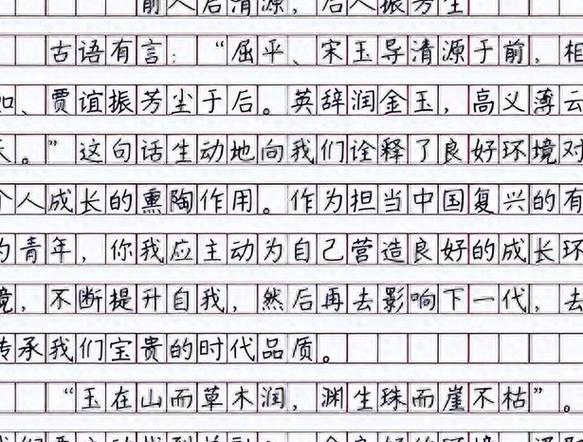 前人启清源，后人振芳尘
古语有言：“屈平、宋玉导清源于前，相
如、贾谊振芳尘于后。英辞润金玉，高义薄云
天。”这句话生动地向我们诠释了良好环境对
个人成长的熏陶作用。作为担当中国复兴的有
为青年，你我应主动为自己营造良好的成长环
境，不断提升自我，然后再去影响下一代，去
传承我们宝贵的时代品质。
“玉在山而草木润，渊生珠而崖不枯”。